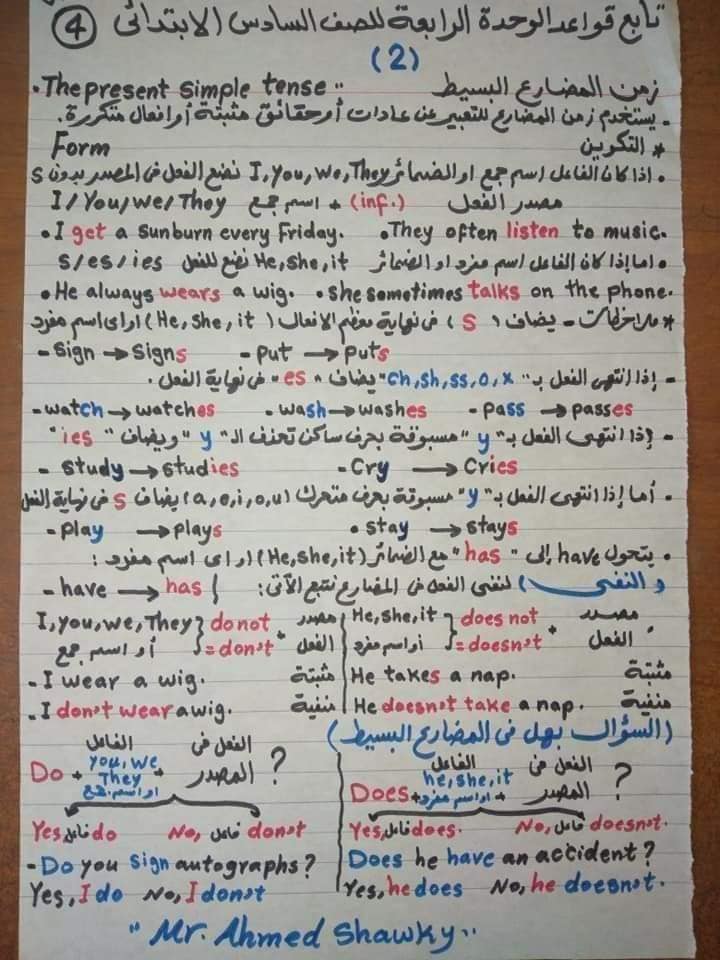 تابع قواعد الوحدة الرابعة للصف السادس الابتدائى ④
(2)
زمن المضارع البسيط The present simple tense
- يستخدم زمن المضارع للتعبير عن عادات أو حقائق مثبتة أو افعال متكررة.
* التكوين Form
• اذا كان الفاعل اسم جمع او الضمائر I, You, we, They نضع الفعل فى المصدر بدون s
I / You / we / They اسم جمع + (inf.) مصدر الفعل
• I get a sunburn every Friday. • They often listen to music.
• اما إذا كان الفاعل اسم مفرد او الضمائر He, she, it نضع للفعل s/es/ies
• He always wears a wig. • She sometimes talks on the phone.
* ملاحظات - يضاف (s) فى نهاية معظم الافعال (He, she, it) او اى اسم مفرد
- sign → signs - put → puts
- إذا انتهى الفعل بـ "ch, sh, ss, o, x" يضاف "es" فى نهاية الفعل.
- watch → watches - wash → washes - pass → passes
- إذا انتهى الفعل بـ "y" مسبوقة بحرف ساكن تحذف الـ "y" ويضاف "ies"
- study → studies - Cry → Cries
• أما إذا انتهى الفعل بـ "y" مسبوقة بحرف متحرك (a, e, i, o, u) يضاف s فى نهاية الفعل
- play → plays • stay → stays
• يتحول have إلى "has" مع الضمائر (He, she, it) او اى اسم مفرد :
- have → has
(والنفى) لنفى الفعل فى المضارع نتبع الآتى :
I, you, we, They أو اسم جمع } do not = don't + مصدر الفعل
- I wear a wig. مثبتة
- I don't wear a wig. منفية
He, she, it أو اسم مفرد } does not = doesn't + مصدر الفعل
He takes a nap. مثبتة
He doesn't take a nap. منفية
(السؤال بهل فى المضارع البسيط)
Do + الفاعل you, we They او اسم جمع + الفعل فى المصدر ?
Yes, فاعل do No, فاعل don't
- Do you sign autographs?
Yes, I do No, I don't
Does + الفاعل he, she, it او اسم مفرد + الفعل فى المصدر ?
Yes, فاعل does. No, فاعل doesn't.
Does he have an accident?
Yes, he does No, he doesn't.
"Mr. Ahmed Shawky"